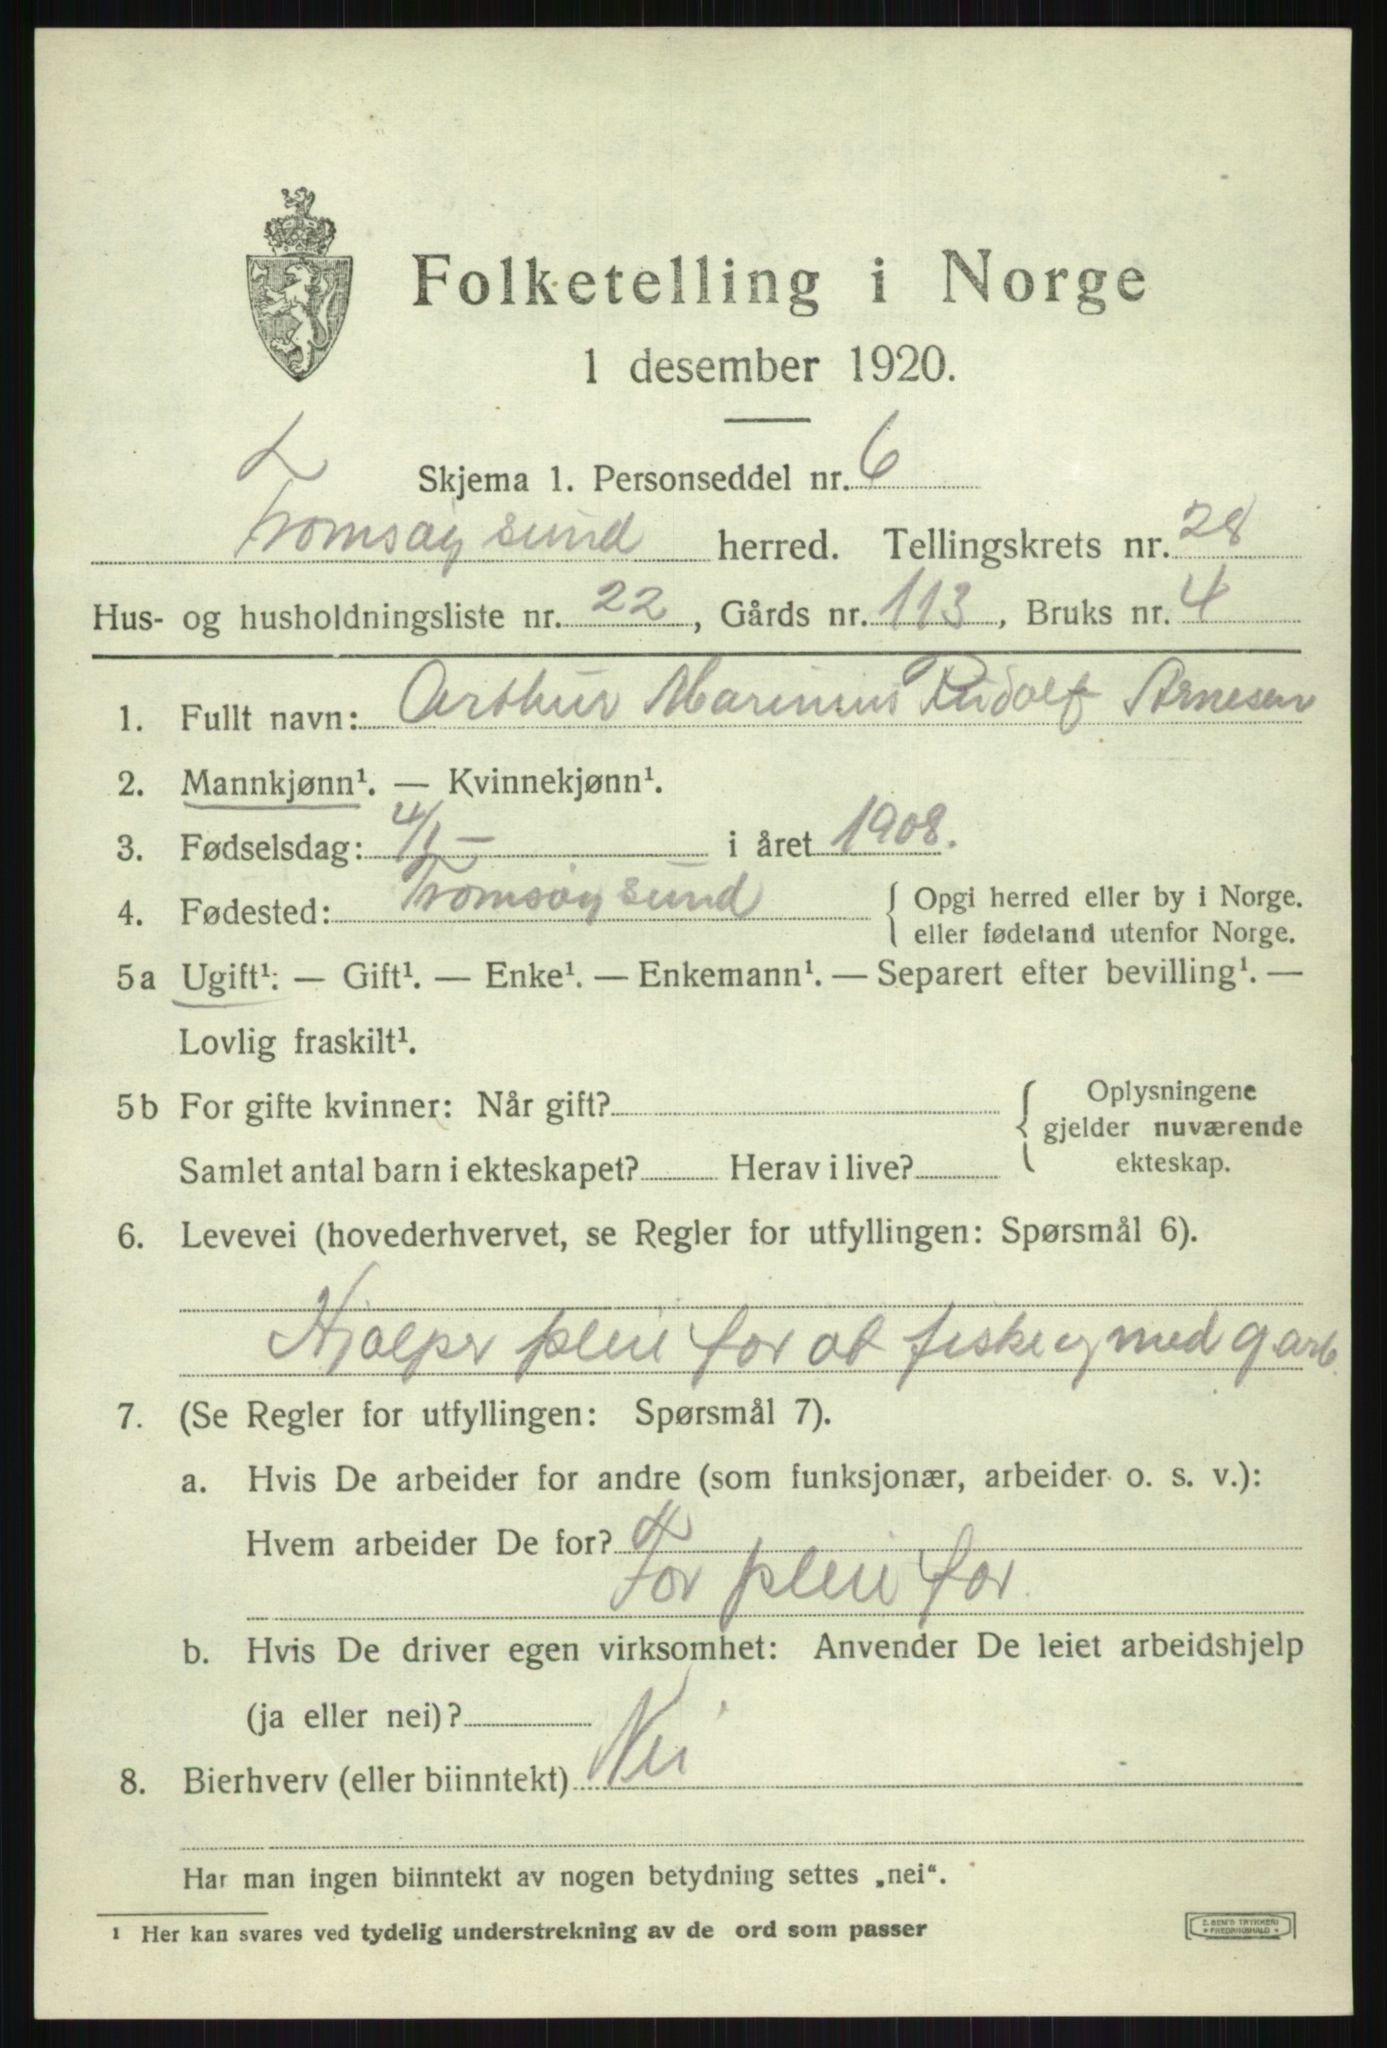 Folketelling i Norge
1 desember 1920.
Skjema 1. Personseddel nr. 6
Tromsøysund herred. Tellingskrets nr. 28
Hus- og husholdningsliste nr. 22, Gårds nr. 113, Bruks nr. 4
1. Fullt navn: Arthur Marinius Rudolf Arnesen
2. Mannkjønn¹. — Kvinnekjønn¹.
3. Fødselsdag: 4/1 – i året 1908.
4. Fødested: Tromsøysund { Opgi herred eller by i Norge.
eller fødeland utenfor Norge.
5a Ugift¹: — Gift¹. — Enke¹. — Enkemann¹. — Separert efter bevilling¹. —
Lovlig fraskilt¹.
5b For gifte kvinner: Når gift? { Oplysningene
gjelder nuværende
Samlet antal barn i ekteskapet? Herav i live? ekteskap.
6. Levevei (hovederhvervet, se Regler for utfyllingen: Spørsmål 6).
Hjælper pleie far at fiske og med garb.
7. (Se Regler for utfyllingen: Spørsmål 7).
a. Hvis De arbeider for andre (som funksjonær, arbeider o. s. v.):
Hvem arbeider De for?
For pleie far
b. Hvis De driver egen virksomhet: Anvender De leiet arbeidshjelp
(ja eller nei)?
8. Bierhverv (eller biinntekt) Nei
Har man ingen biinntekt av nogen betydning settes „nei“.
¹ Her kan svares ved tydelig understrekning av de ord som passer
E. SEM'S TRYKKERI
FREDRIKSHALD